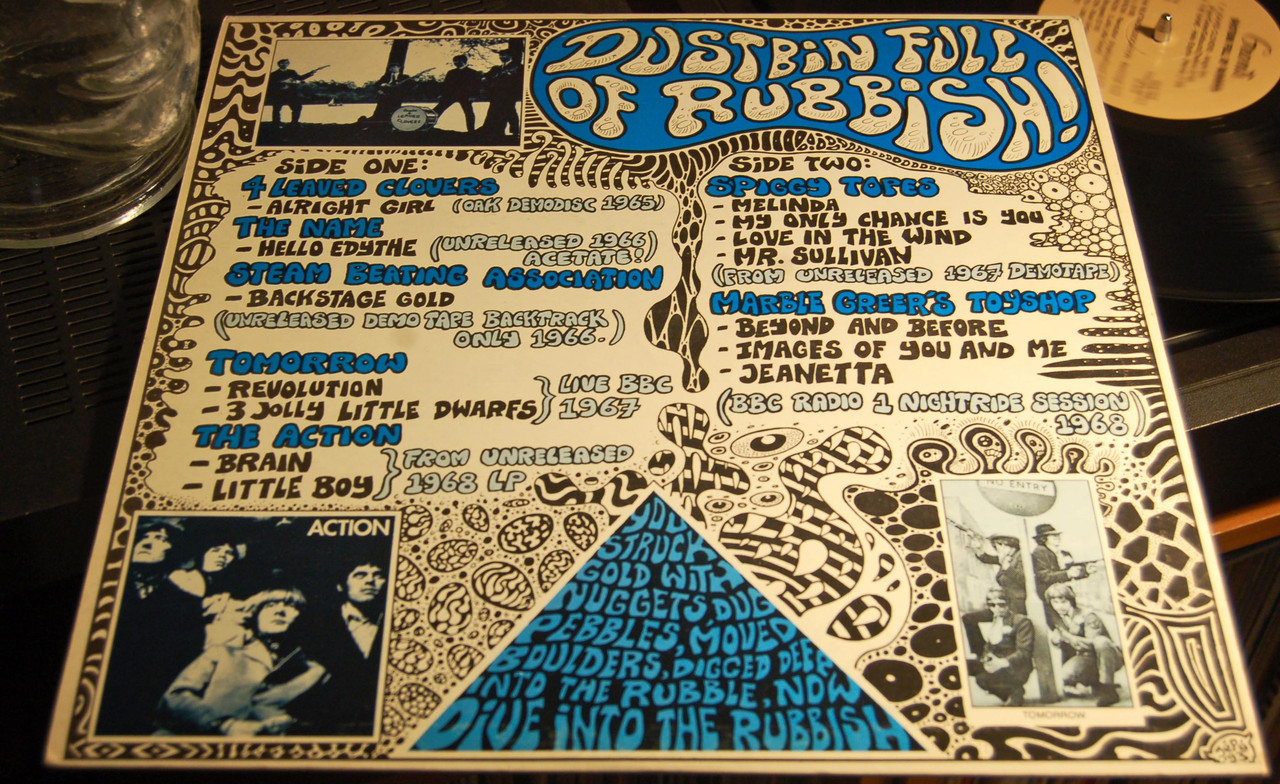 DUSTBIN FULL
OF RUBBISH!
SIDE ONE:
4 LEAVED CLOVERS
- ALRIGHT GIRL (OAK DEMODISC 1965)
THE NAME
- HELLO EDYTHE (UNRELEASED 1966
ACETATE!)
STEAM BEATING ASSOCIATION
- BACKSTAGE GOLD
(UNRELEASED DEMO TAPE BACKTRACK
ONLY 1966.)
TOMORROW
- REVOLUTION
- 3 JOLLY LITTLE DWARFS
} LIVE BBC
1967
THE ACTION
- BRAIN
- LITTLE BOY
} FROM UNRELEASED
1968 LP
SIDE TWO:
SPIGGY TOPES
- MELINDA
- MY ONLY CHANCE IS YOU
- LOVE IN THE WIND
- MR. SULLIVAN
(FROM UNRELEASED 1967 DEMOTAPE)
MARBLE GREER'S TOYSHOP
- BEYOND AND BEFORE
- IMAGES OF YOU AND ME
- JEANETTA
(BBC RADIO 1 NIGHTRIDE SESSION
1968)
ACTION
YOU
STRUCK
GOLD WITH
NUGGETS, DUG
PEBBLES, MOVED
BOULDERS, DIGGED DEEP
INTO THE RUBBLE, NOW
DIVE INTO THE RUBBISH
NO ENTRY
TOMORROW